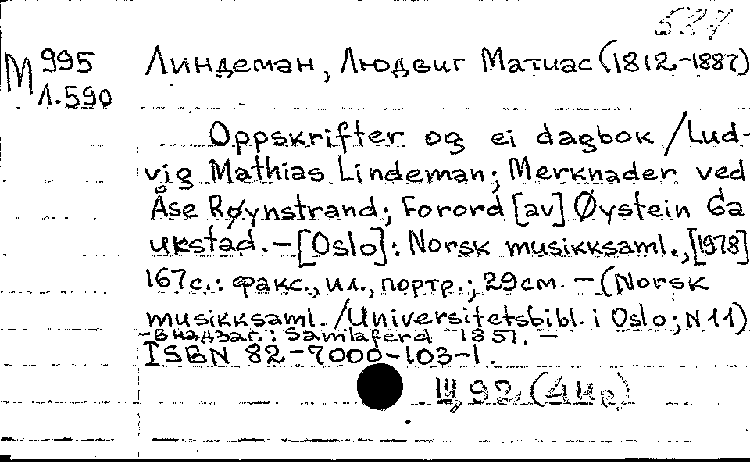 587
М 995
Л.590
Линдеман, Людвиг Матиас (1812-1887)
Oppskrifter og ei dagbok / Lud-
vig Mathias Lindeman; Merknader ved
Åse Røynstrand; Forord [av] Øystein Ga
ukstad. – [Oslo]: Norsk musikksaml., [1978]
167с.: факс., ил., портр.; 29см. – (Norsk
musikksaml. / Universitetsbibl. i Oslo; N 11)
- В надзаг.: Samlaferd 1851. –
ISBN 82-7000-103-1.
Ш, 92